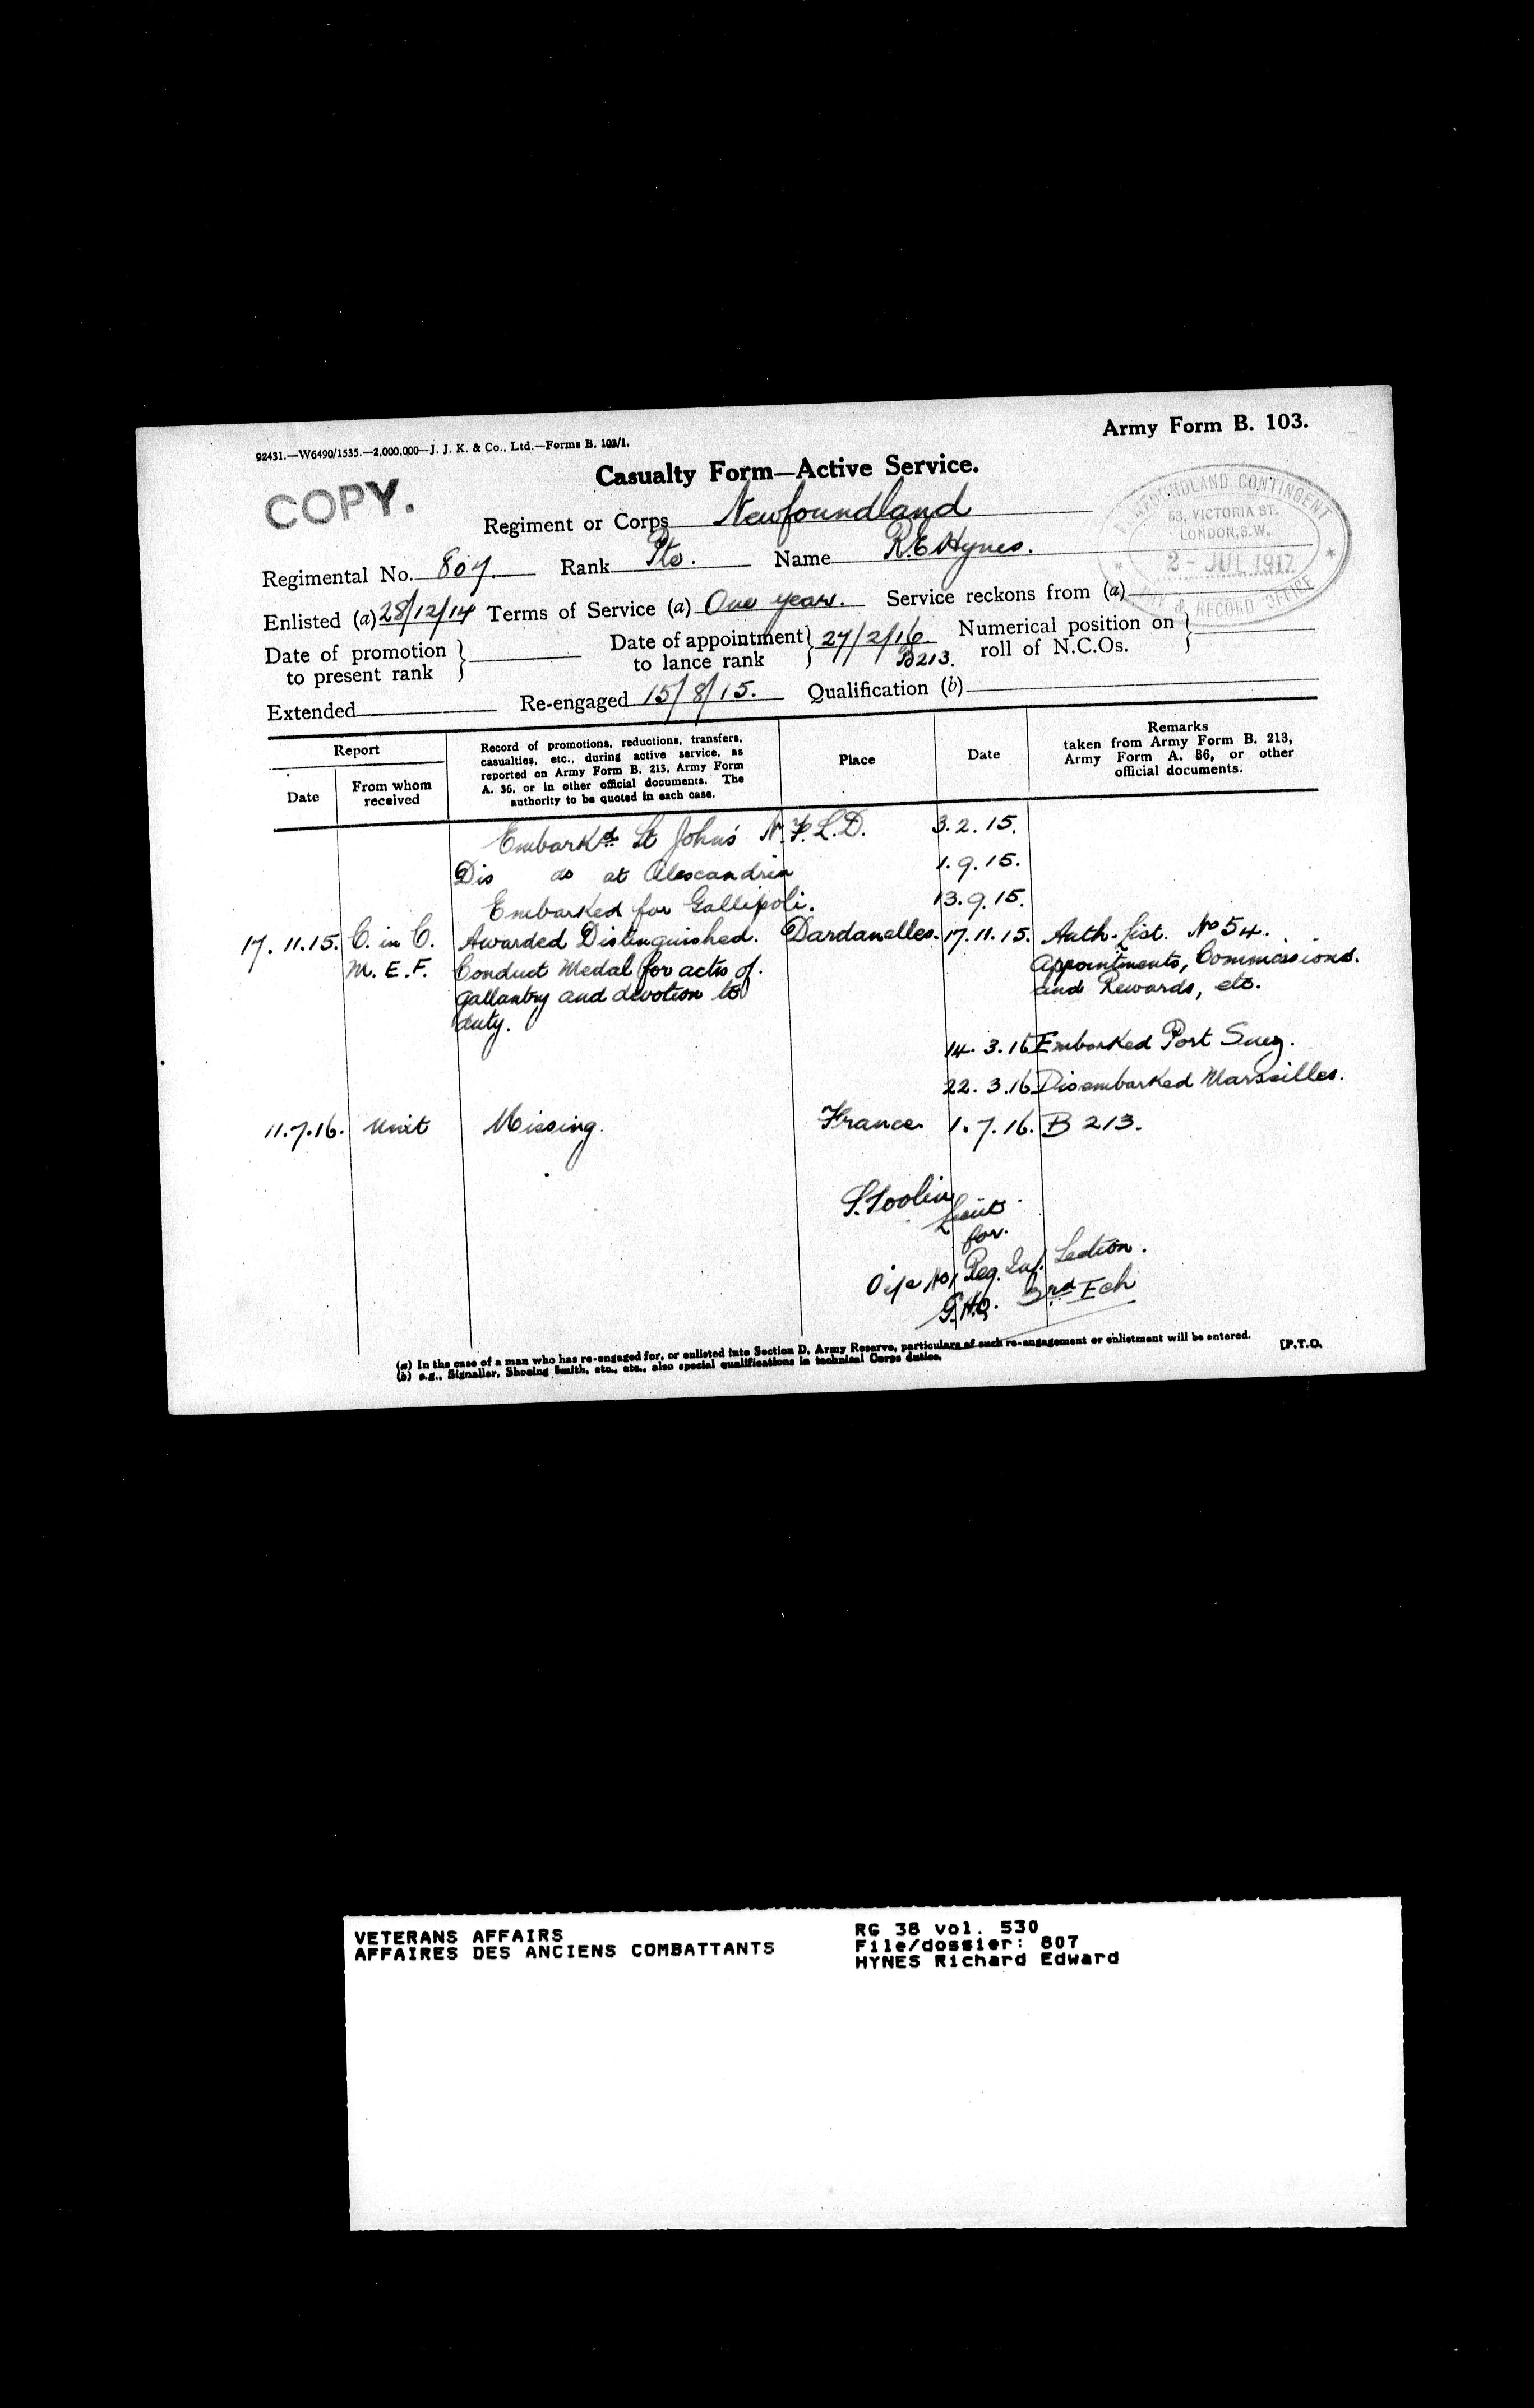 92431.—W6490/1535.—2,000,000—J. J. K. & Co., Ltd.—Forms B. 103/1.
Army Form B. 103.
Casualty Form—Active Service.
COPY.
NEWFOUNDLAND CONTINGENT
58, VICTORIA ST.
LONDON, S.W.
2 - JUL 1917
PAY & RECORD OFFICE
Regiment or Corps Newfoundland
Regimental No. 807. Rank Pte. Name R.E Hynes.
Enlisted (a) 28/12/14 Terms of Service (a) One year. Service reckons from (a)
Date of promotion to present rank } Date of appointment to lance rank } 27/2/16 B213. Numerical position on roll of N.C.Os. }
Extended Re-engaged 15/8/15. Qualification (b)
Report
Date
From whom received
Record of promotions, reductions, transfers, casualties, etc., during active service, as reported on Army Form B. 213, Army Form A. 36, or in other official documents. The authority to be quoted in each case.
Place
Date
Remarks taken from Army Form B. 213, Army Form A. 36, or other official documents.
Embarkd St John's N.F.L.D. 3.2.15.
Dis do at Alexandria 1.9.15.
Embarked for Gallipoli. 13.9.15.
17.11.15. C. in C. Awarded Distinguished. Dardanelles. 17.11.15. Auth. List. No 54.
M.E.F. Conduct Medal for acts of. Appointments, Commissions.
gallantry and devotion to and Rewards, etc.
duty.
14.3.16 Embarked Port Suez.
22.3.16 Disembarked Marseilles.
11.7.16. Unit Missing. France. 1.7.16. B 213.
Lieut
for.
O i/c No 1 Reg. Inf. Section.
G.H.Q. 3rd Ech
(a) In the case of a man who has re-engaged for, or enlisted into Section D, Army Reserve, particulars of such re-engagement or enlistment will be entered.
(b) e.g., Signaller, Shoeing Smith, etc., etc., also special qualifications in technical Corps duties.
[P.T.O.
VETERANS AFFAIRS
AFFAIRES DES ANCIENS COMBATTANTS
RG 38 vol. 530
File/dossier: 807
HYNES Richard Edward